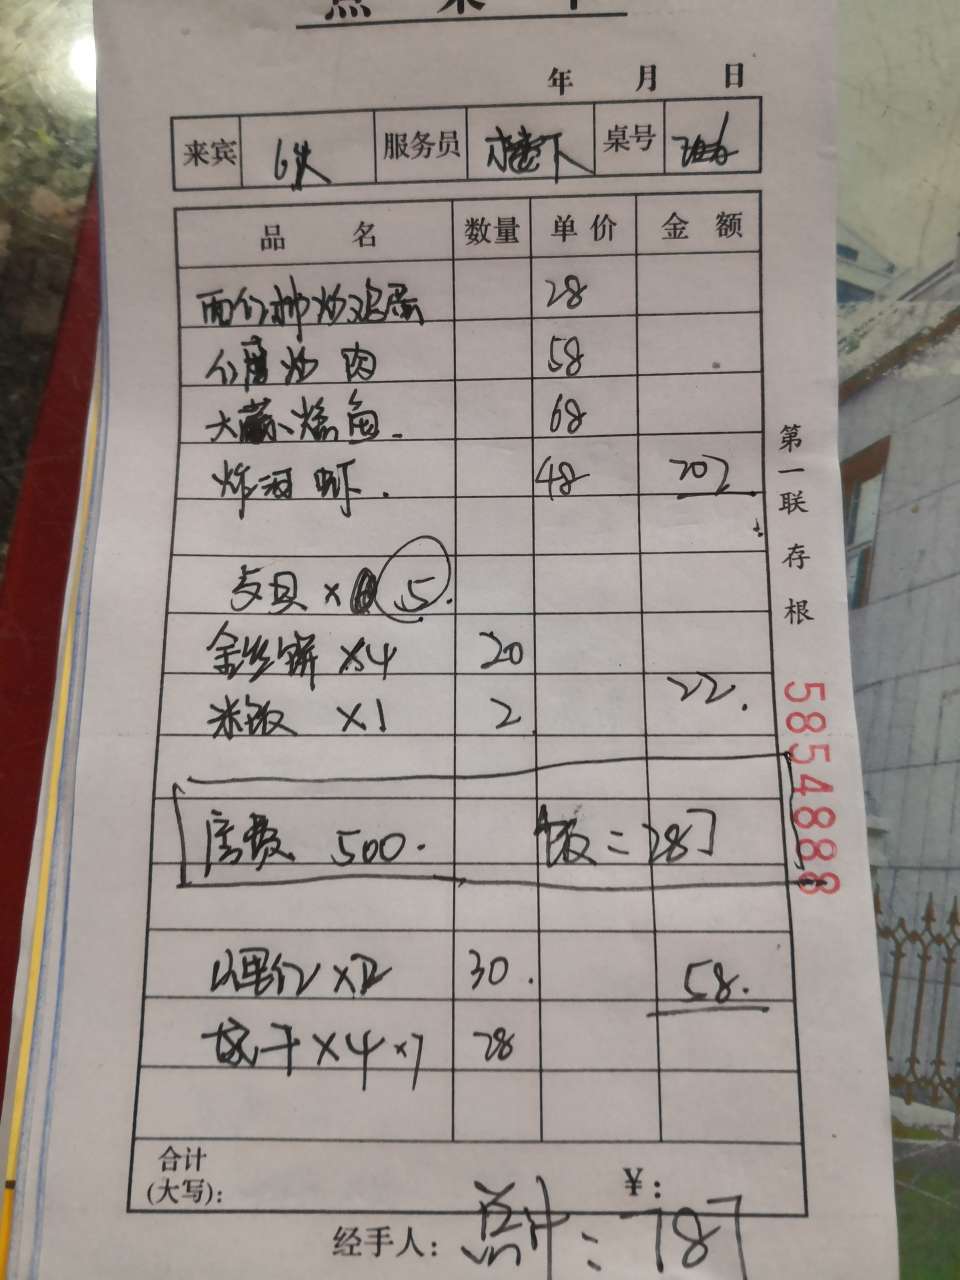 点菜单
年 月 日
来宾 6大 服务员 楼下 桌号
品名 数量 单价 金额
西红柿炒鸡蛋 28
炒肉 58
大 鱼 68
炸河虾 48 202
扇贝 × 5
金丝饼 ×4 20
22
米饭 ×1 2
房费 500. 饭=287
×2 30
58.
×4 ×7 28
合计
(大写): ¥:
经手人: 总计=787
第一联存根
5854888